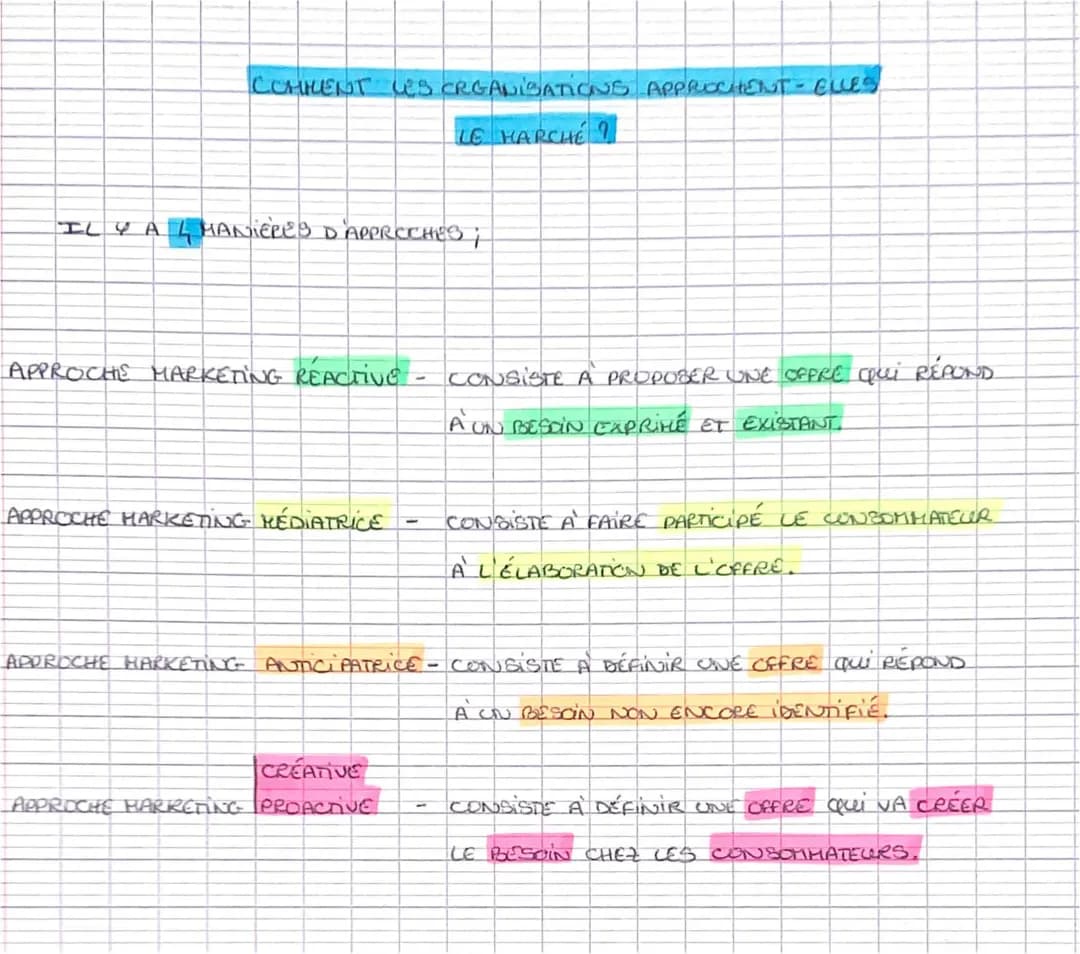 COMMENT LES ORGANISATIONS APPROCHENT-ELLES
LE MARCHÉ ?
IL Y A 4 MANIÈRES D'APPROCHES ;
APPROCHE MARKETING RÉACTIVE - CONSISTE À PROPOSER UNE OFFRE qui RÉPOND
À UN BESOIN EXPRIMÉ ET EXISTANT.
APPROCHE MARKETING MÉDIATRICE - CONSISTE À FAIRE PARTICIPÉ LE CONSOMMATEUR
À L'ÉLABORATION DE L'OFFRE.
APPROCHE MARKETING ANTICIPATRICE - CONSISTE À DÉFINIR UNE OFFRE qui RÉPOND
À UN BESOIN NON ENCORE IDENTIFIÉ.
CRÉATIVE
APPROCHE MARKETING PROACTIVE - CONSISTE À DÉFINIR UNE OFFRE qui VA CRÉER
LE BESOIN CHEZ LES CONSOMMATEURS.